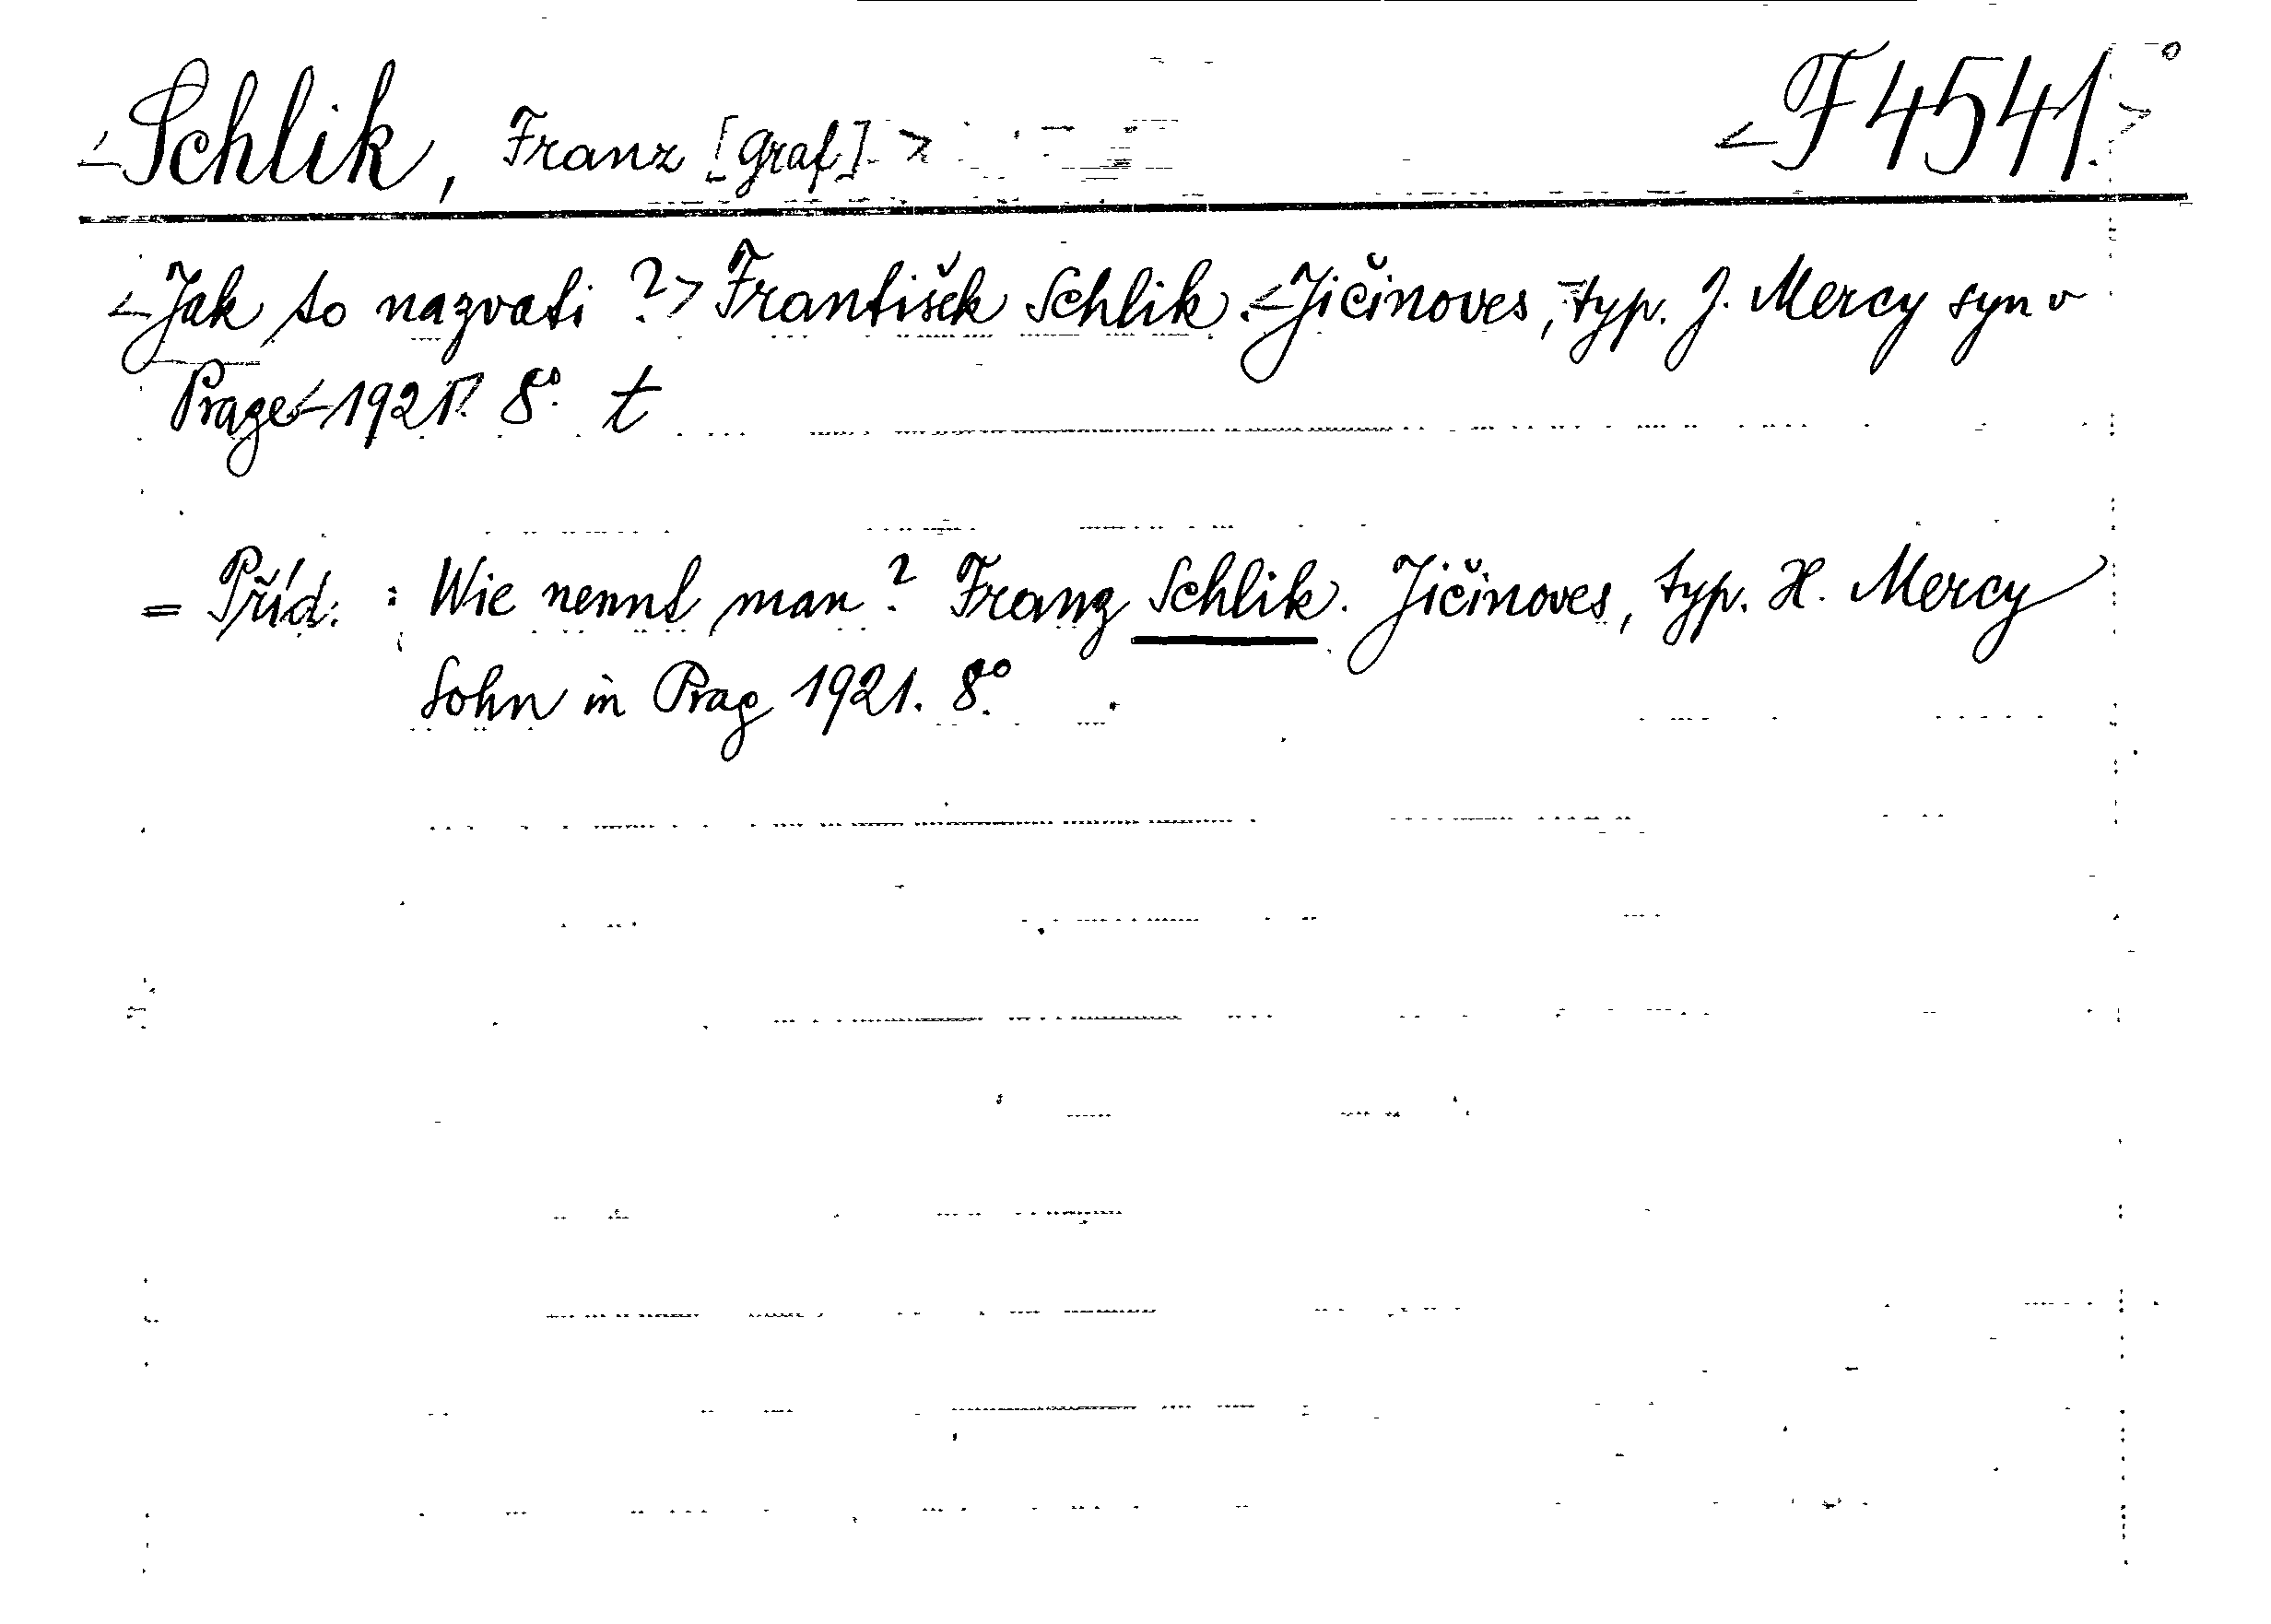 <Schlik, Franz [Graf]> <F 4541.>
<Jak to nazvati?> František Schlik. <Jičinoves, typ. J. Mercy syn v
Praze <1921>. 8°. t
= Příd.: Wie nennt man? Franz Schlik. Jičinoves, typ. H. Mercy
Sohn in Prag 1921. 8°.